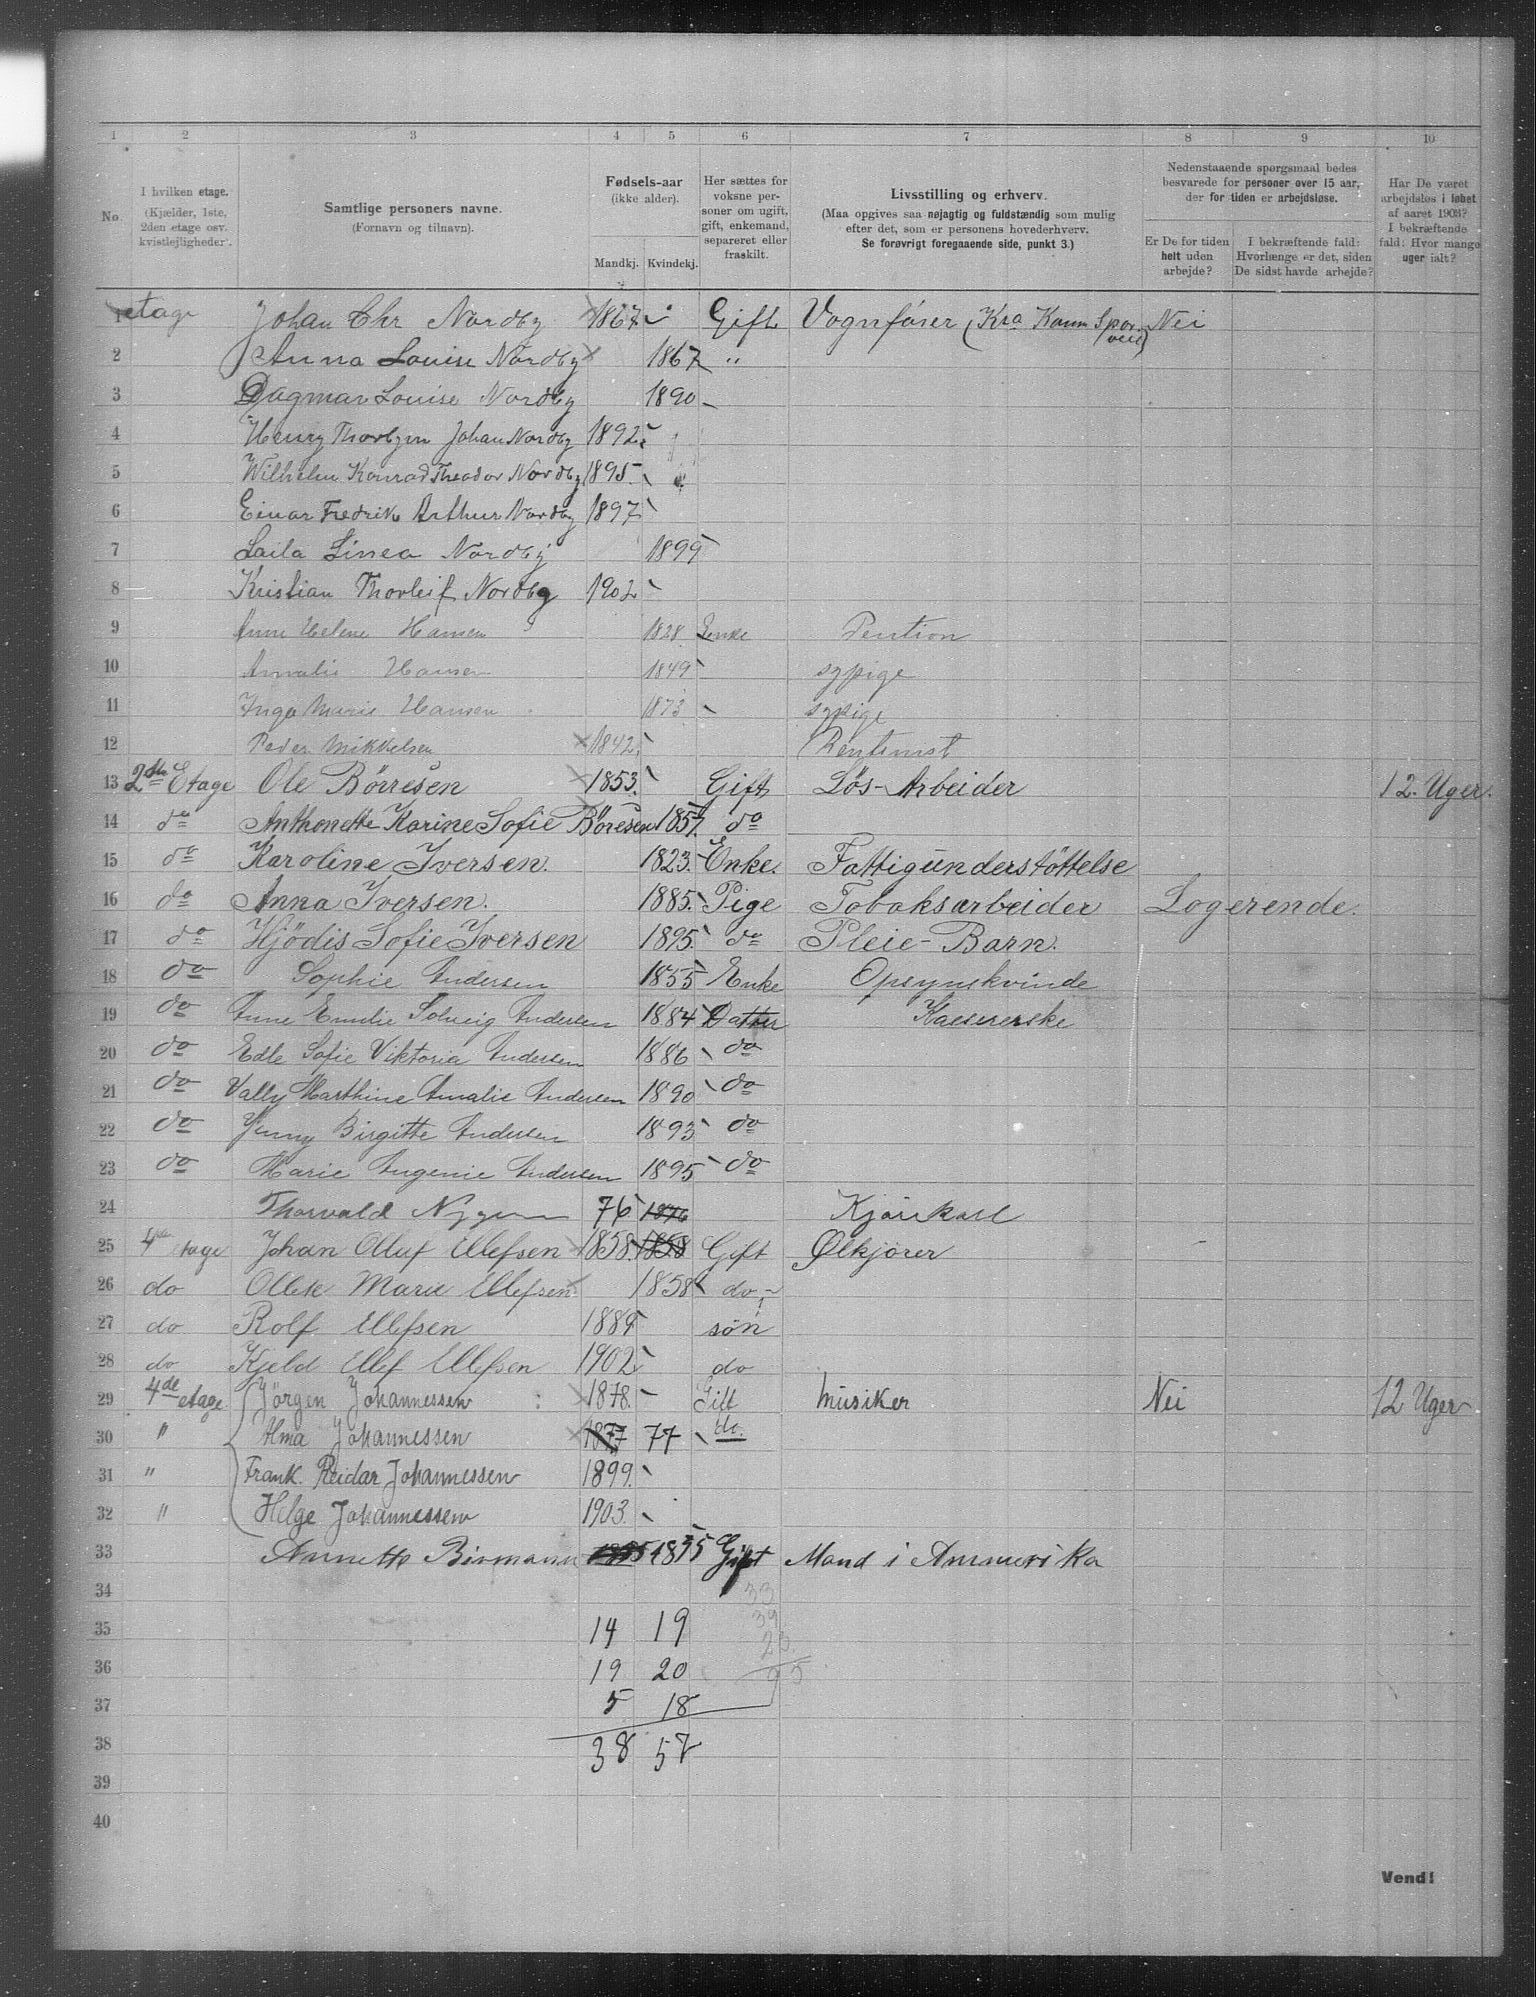 1 2 3 4 5 6 7 8 9 10
No.
I hvilken etage.
(Kjælder, 1ste, 2den etage osv. kvistlejligheder.
Samtlige personers navne.
(Fornavn og tilnavn).
Fødsels-aar
(ikke alder).
Mandkj. Kvindekj.
Her sættes for voksne personer om ugift, gift, enkemand, separeret eller fraskilt.
Livsstilling og erhverv.
(Maa opgives saa nøjagtig og fuldstændig som mulig efter det, som er personens hovederhverv.
Se forøvrigt foregaaende side, punkt 3.)
Nedenstaaende spørgsmaal bedes besvarede for personer over 15 aar, der for tiden er arbejdsløse.
Er De for tiden helt uden arbejde?
I bekræftende fald: Hvorlænge er det, siden De sidst havde arbejde?
Har De været arbejdsløs i løbet af aaret 1903? I bekræftende fald: Hvor mange uger ialt?
1 etage Johan Chr Nordby 1867 Gift Vognfører (Kra Kom Sporveie) Nei
2 Anna Louise Nordby 1867 "
3 Dagmar Louise Nordby 1890
4 Henry Thorbjørn Johan Nordby 1892
5 Wilhelm Konrad Theodor Nordby 1895
6 Einar Fredrik Arthur Nordby 1897
7 Laila Linea Nordby 1899
8 Kristian Thorleif Nordby 1902
9 Anne Helene Hansen 1828 Enke Pention
10 Amalie Hansen 1849 sypige
11 Inga Marie Hansen 1873 sypige
12 Peder Mikkelsen 1842 Rentenist
13 2den Etage Ole Börresen 1853 Gift Lös-Arbeider 12 Uger.
14 do Anthonette Karine Sofie Böresen 1857. do
15 do Karoline Iversen. 1823. Enke. Fattigunderstöttelse
16 do Anna Iversen. 1885. Pige Tobaksarbeider Logerende.
17 do Hjödis Sofie Iversen 1895. do Pleie-Barn.
18 do Sophie Andersen 1855 Enke Opsynskvinde
19 do Anne Emilie Solveig Andersen 1884 Datter Kassererske
20 do Edle Sofie Viktoria Andersen 1886 do
21 do Vally Marthine Amalie Andersen 1890 do
22 do Jenny Birgitte Andersen 1893 do
23 do Marie Eugenie Andersen 1895 do
24 Thorvald 76 1876 Kjørekarl
25 4de etage Johan Oluf Ellefsen 1858 1858 Gift Ølkjører
26 do Marie Ellefsen 1858 do
27 do Rolf Ellefsen 1889 søn
28 do Kjeld Ellef Ellefsen 1902 do
29 4de etage Jørgen Johannessen 1878. Gift Musiker Nei 12 Uger
30 " Alma Johannessen 1877 77 do.
31 " Frank. Reidar Johannessen 1899.
32 " Helge Johannessen 1903.
33 Annette Birmann 1835 Gift Mand i Ammerika
34 33
35 14 19 39
36 19 20 23
95
37 5 18
38 38 57
39
40
Vend!